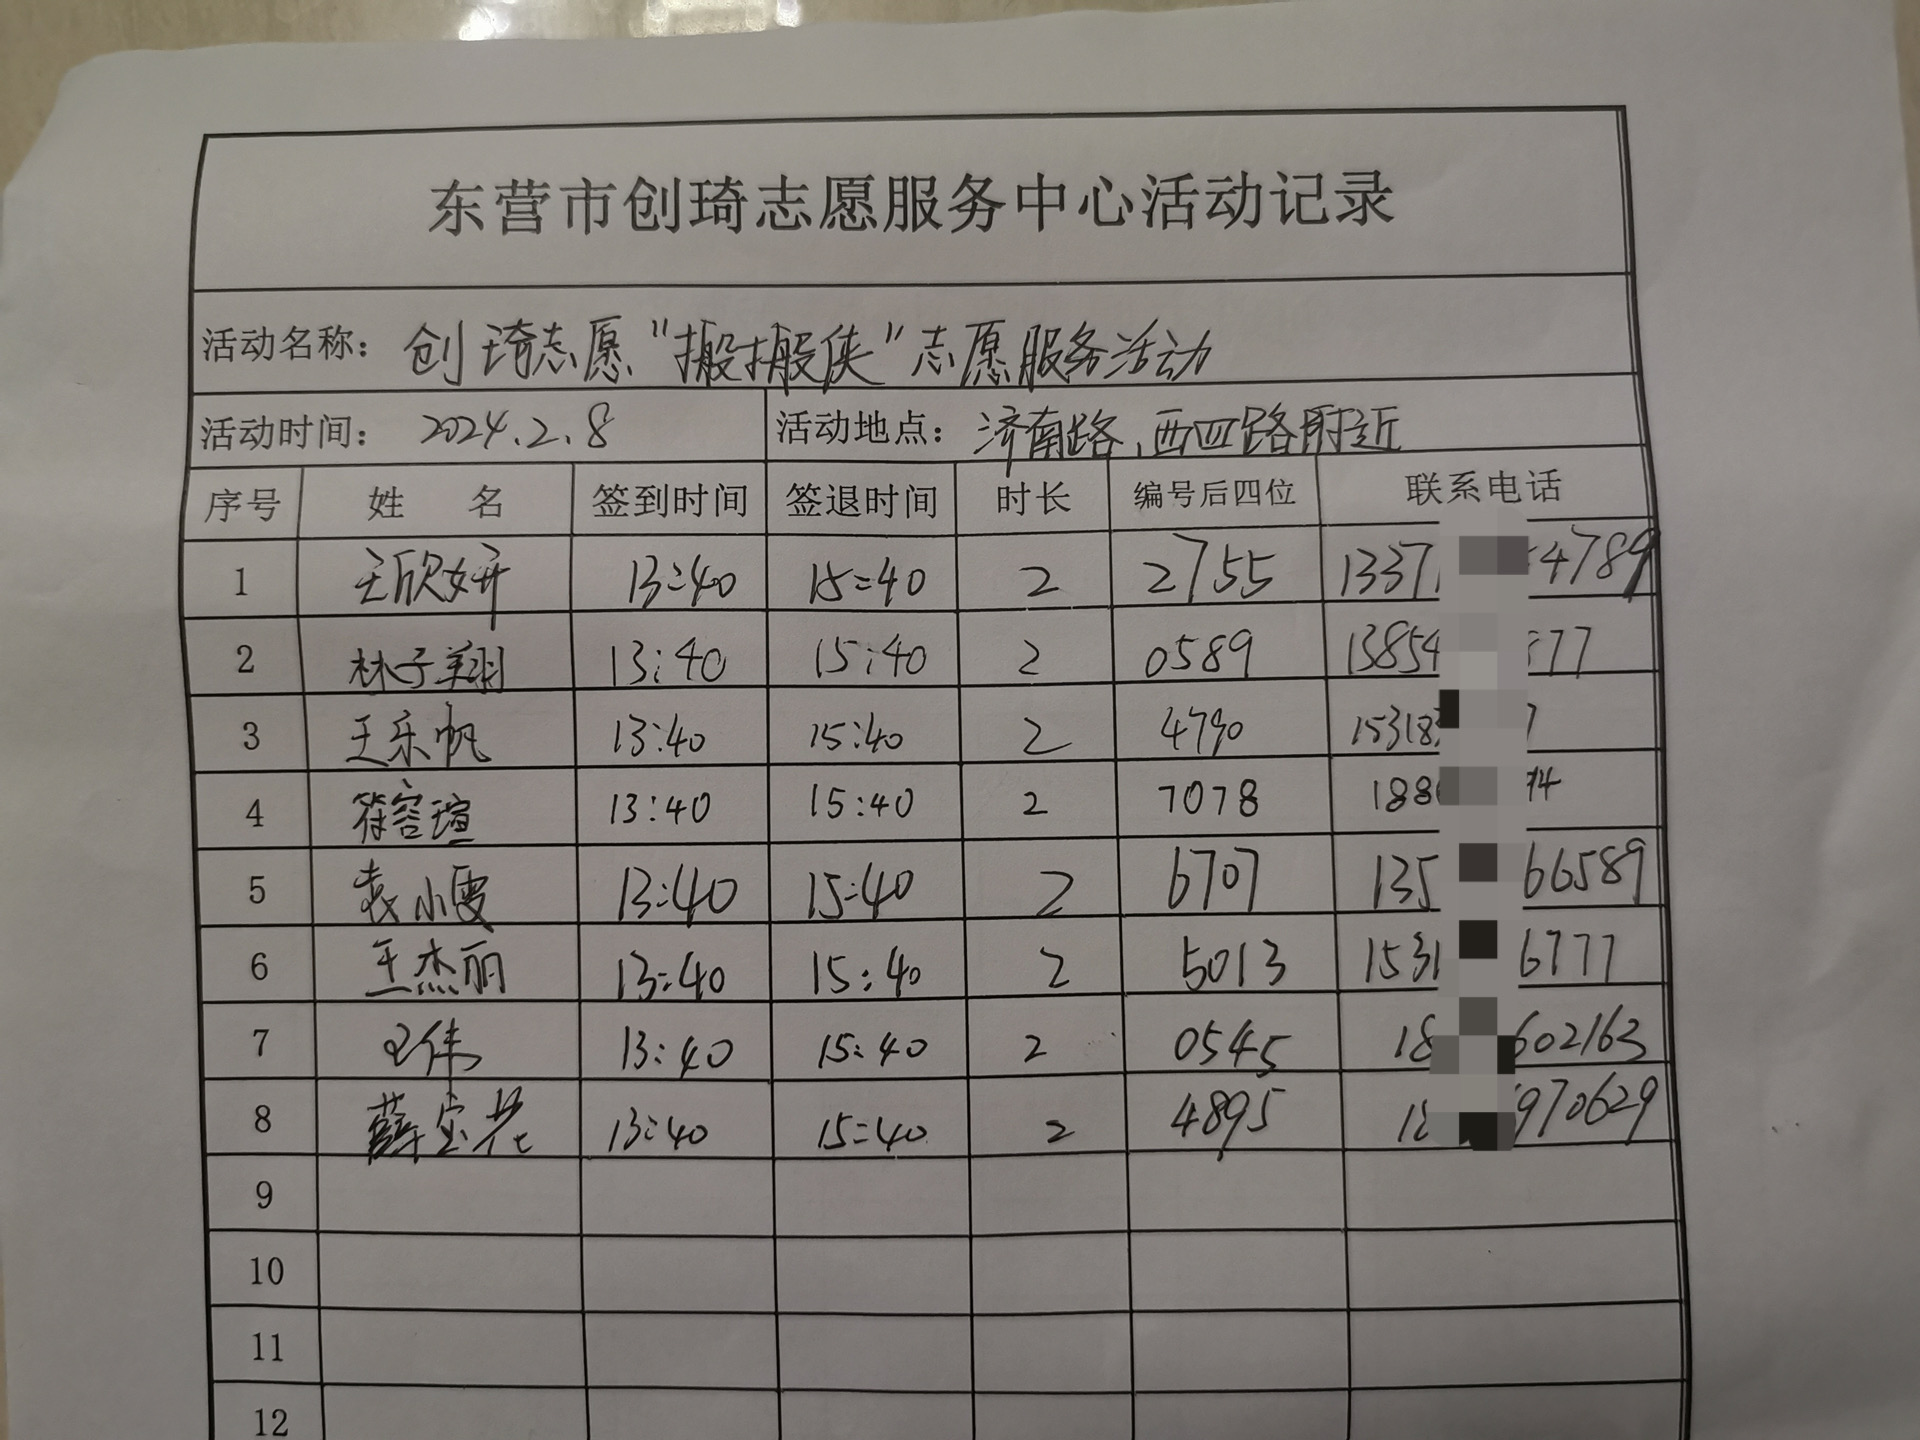 东营市创琦志愿服务中心活动记录
活动名称：创琦志愿“搬搬侠”志愿服务活动
活动时间：2024.2.8 活动地点：济南路、西四路附近
序号 姓名 签到时间 签退时间 时长 编号后四位 联系电话
1 王欣妍 13:40 15:40 2 2755 1337 4789
2 林子翔 13:40 15:40 2 0589 13854 77
3 王乐帆 13:40 15:40 2 4790 15318 7
4 符容瑄 13:40 15:40 2 7078 188 14
5 袁小雯 13:40 15:40 2 6707 135 66589
6 王杰丽 13:40 15:40 2 5013 1531 6777
7 王伟 13:40 15:40 2 0545 18 602163
8 薛宝花 13:40 15:40 2 4895 18 970629
9
10
11
12